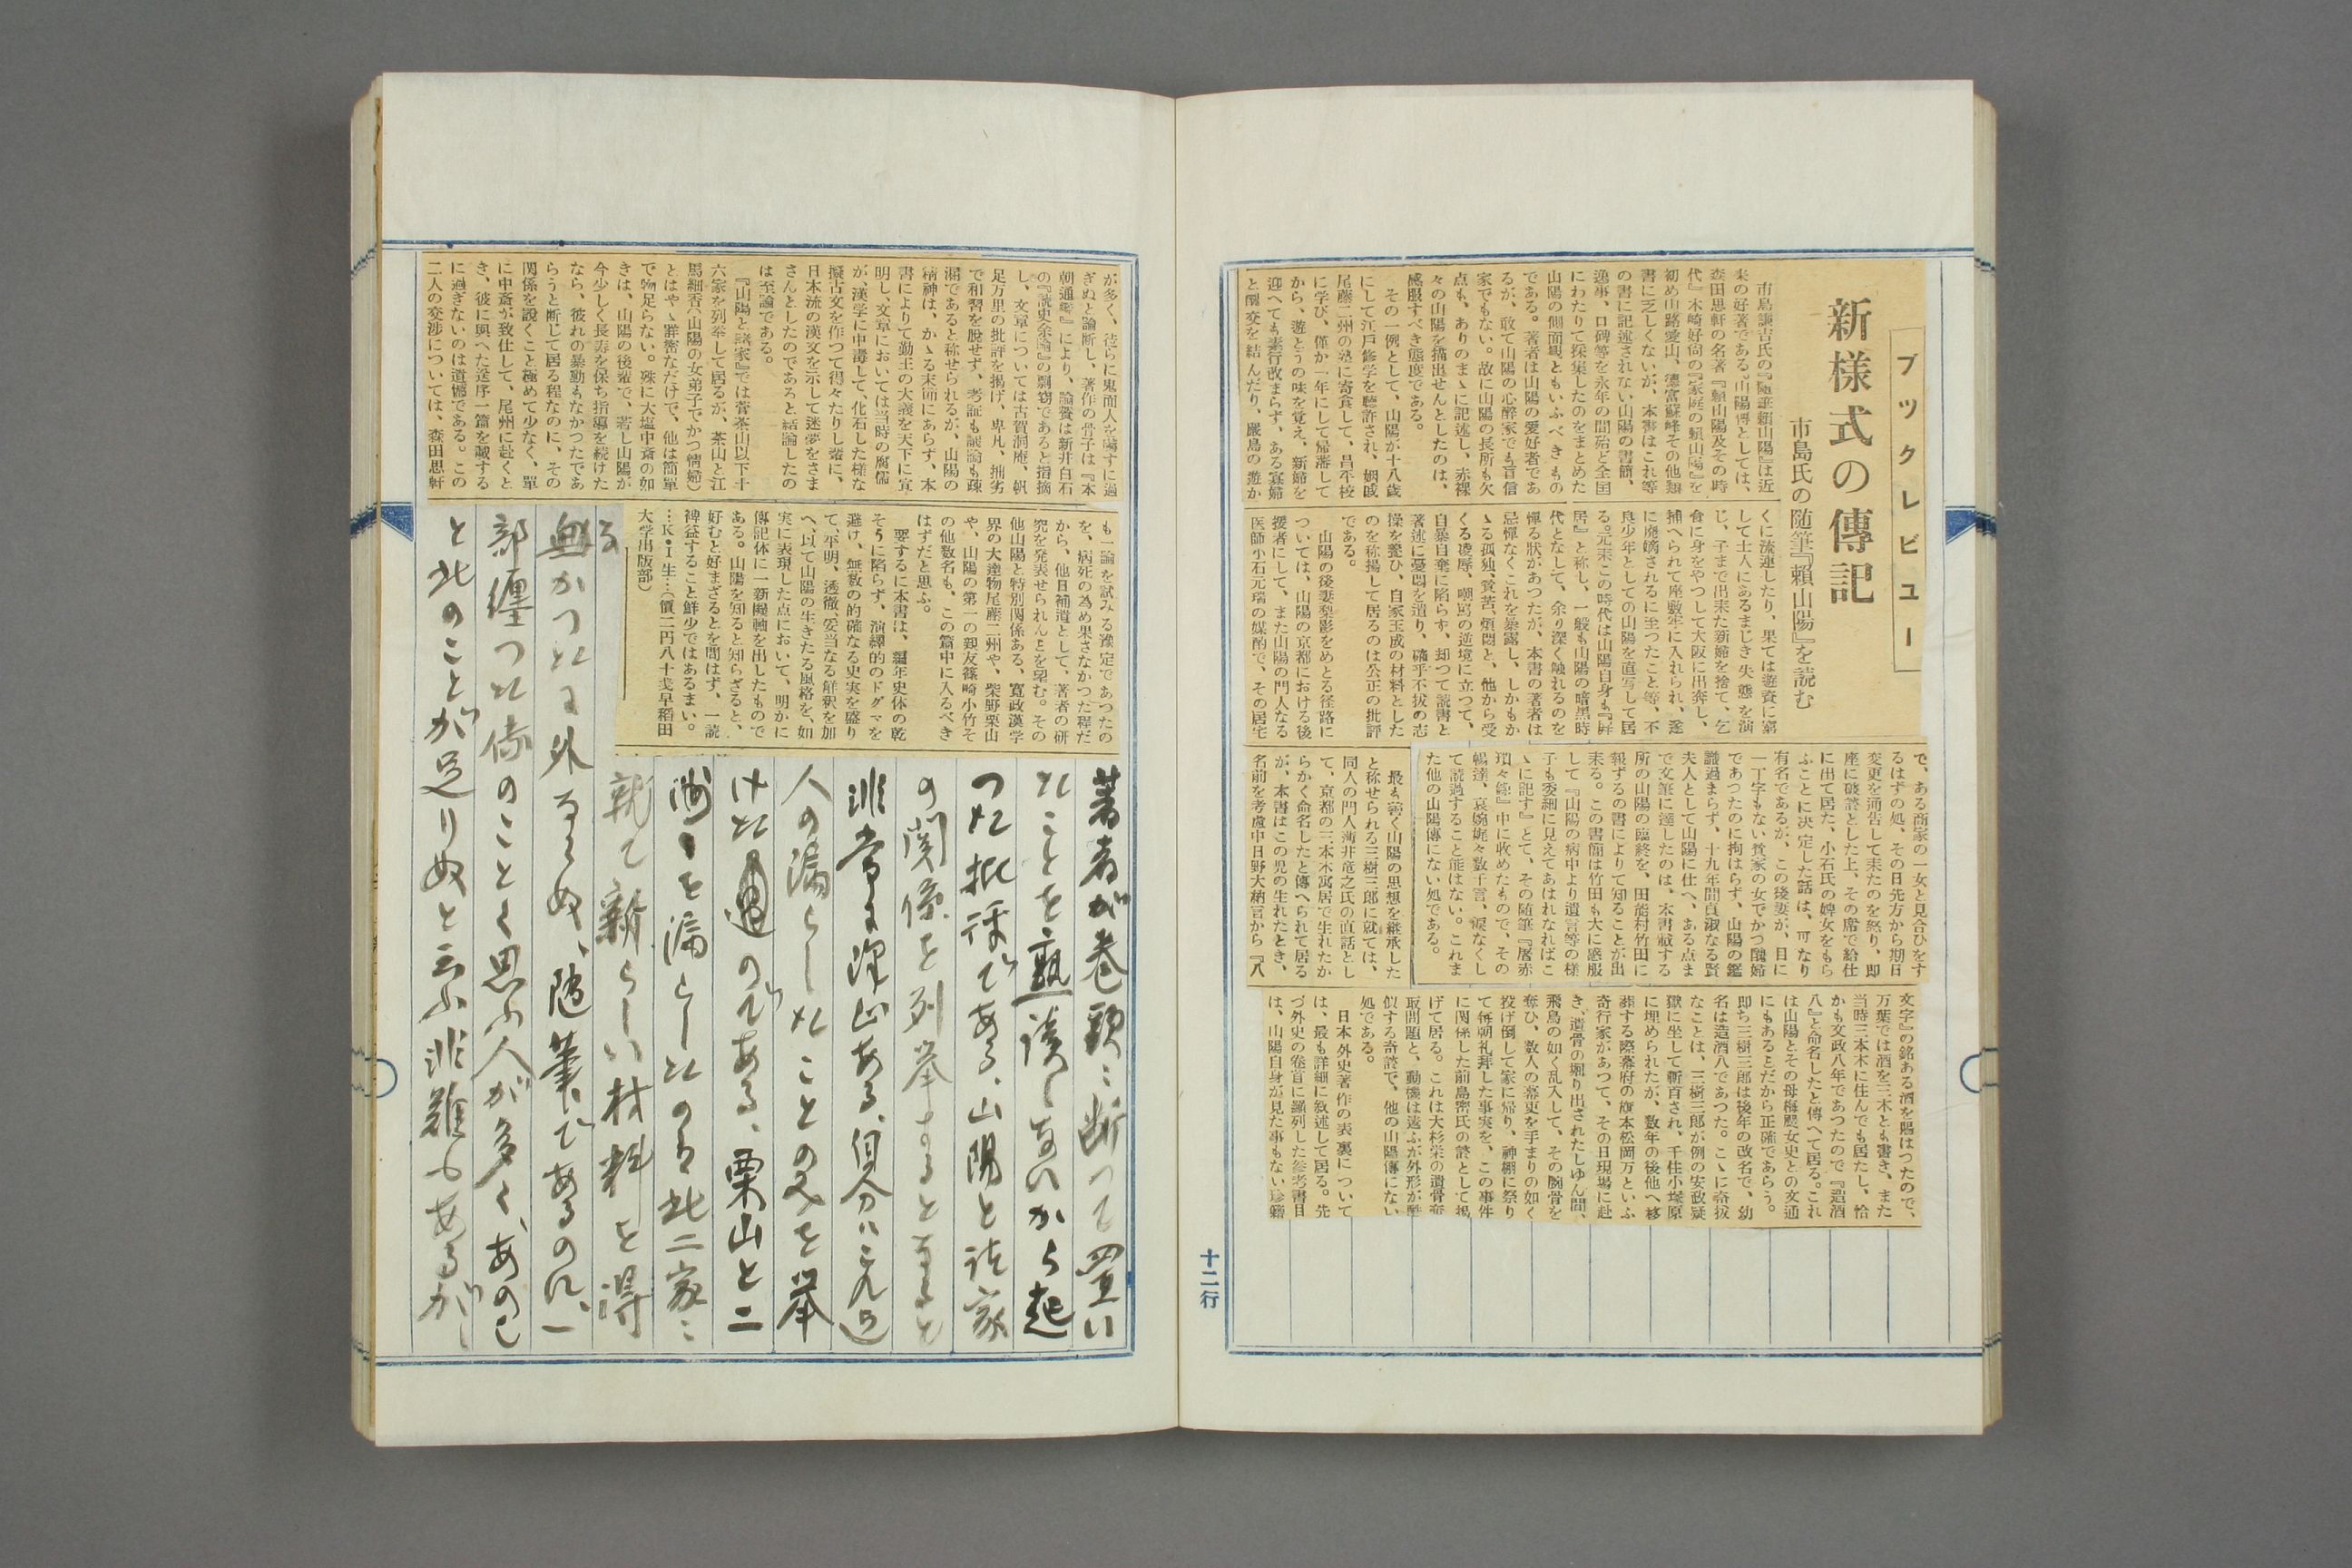 ブックレビュー
新様式の傳記
市島氏の随筆『頼山陽』を読む
市島謙吉氏の『随筆頼山陽』は近
来の好著である。山陽傳としては、
森田思軒の名著『頼山陽及その時
代』木崎好尚の『家庭の頼山陽』を
初め山路愛山、徳富蘇峰その他類
書に乏しくないが、本書はこれ等
の書に記述されない山陽の書簡、
逸事、口碑等を永年の間殆ど全国
にわたりて採集したのをまとめた
山陽の側面観ともいふべきもの
である。著者は山陽の愛好者であ
るが、敢て山陽の心酔家でも盲信
家でもない。故に山陽の長所も欠
点も、ありのまゝに記述し、赤裸
々の山陽を描出せんとしたのは、
感服すべき態度である。
その一例として、山陽が十八歳
にして江戸修学を聴許され、姻戚
尾藤二州の塾に寄食して、昌平校
に学び、僅か一年にして帰藩して
から、遊とうの味を覚え、新婦を
迎へても素行改まらず、ある寡婦
と関交を結んだり、厳島の遊か
くに流連したり、果ては遊資に窮
して士人にあるまじき失態を演
じ、子まで出来た新婦を捨て、乞
食に身をやつして大阪に出奔し、
捕へられて座敷牢に入れられ、遂
に廃嫡されるに至つたこと等、不
良少年としての山陽を直写して居
る。元来この時代は山陽自身も『屏
居』と称し、一般も山陽の暗黒時
代となして、余り深く触れるのを
憚る状があつたが、本書の著者は
忌憚なくこれを暴露し、しかもか
ゝる孤独、貧苦、煩悶と、他から受
くる凌辱、嘲罵の逆境に立つて、
自暴自棄に陥らず、却つて読書と
著述に憂悶を遣り、確乎不抜の志
操を養ひ、自家玉成の材料とした
のを称揚して居るのは公正の批評
である。
山陽の後妻梨影をめとる径路に
ついては、山陽の京都における後
援者にして、また山陽の門人なる
医師小石元瑞の媒酌で、その居宅
で、ある商家の一女と見合ひをす
るはずの処、その日先方から期日
変更を通告して来たのを怒り、即
座に破談とした上、その席で給仕
に出て居た、小石氏の婢女をもら
ふことに決定した話は、可なり
有名であるが、この後妻が、目に
一丁字もない貧家の女でかつ醜婦
であつたのに拘はらず、山陽の鑑
識過まらず、十九年間貞淑なる賢
夫人として山陽に仕へ、ある点ま
で文筆に達したのは、本書載する
所の山陽の臨終を、田能村竹田に
報ずるの書によりて知ることが出
来る。この書簡は竹田も大に感服
して『山陽の病中より遺言等の様
子も委細に見えてあはれなればこ
ゝに記す』とて、その随筆『屠赤
瑣々録』中に収めたもので、その
暢達、哀婉、娓々数千言、涙なくし
て読過すること能はない。これま
た他の山陽傳にない処である。
最も善く山陽の思想を継承した
と称せられる三樹三郎に就ては、
同人の門人薄井竜之氏の直話とし
て、京都の三本木寓居で生れたか
らかく命名したと傳へられて居る
が、本書はこの児の生れたとき、
名前を考慮中日野大納言から『八
文字』の銘ある酒を賜はつたので、
万葉では酒を三木とも書き、また
当時三本木に住んでも居たし、恰
かも文政八年であつたので『造酒
八』と命名したと傳へて居る。これ
は山陽とその母梅颸女史との文通
にもあるとだから正確であらう。
即ち三樹三郎は後年の改名で、幼
名は造酒八であつた。こゝに奇抜
なことは、三樹三郎が例の安政疑
獄に坐して斬首され、千住小塚原
に埋められたが、数年の後他へ移
葬する際幕府の旗本松岡万といふ
奇行家があつて、その日現場に赴
き、遺骨の堀り出されたしゆん間、
飛鳥の如く乱入して、その腕骨を
奪ひ、数人の幕吏を手まりの如く
投げ倒して家に帰り、神棚に祭り
て毎朝礼拝した事実を、この事件
に関係した前島密氏の談として掲
げて居る。これは大杉栄の遺骨奪
取問題と、動機は違ふが外形が酷
似する奇談で、他の山陽傳にない
処である。
日本外史著作の表裏について
は、最も詳細に敘述して居る。先
づ外史の巻首に羅列した参考書目
は、山陽自身が見た事もない珍籍
十二行
が多く、徒らに鬼面人を嚇すに過
ぎぬと論断し、著作の骨子は『本
朝通鑑』により、論賛は新井白石
の『読史余論』の剽窃であると指摘
し、文章については古賀洞庵、帆
足万里の批評を掲げ、卑凡、拙劣
で和習を脱せず、考証も議論も疎
漏であると称せられるが、山陽の
精神は、かゝる末節にあらず、本
書によりて勤王の大義を天下に宣
明し、文章においては当時の腐儒
が、漢学に中毒して、化石した様な
擬古文を作つて得々たりし輩に、
日本流の漢文を示して迷夢をさま
さんとしたのであると結論したの
は至論である。
『山陽と諸家』では菅茶山以下十
六家を列挙して居るが、茶山と江
馬細香(山陽の女弟子でかつ情婦)
とはやゝ詳密なだけで、他は簡単
で物足らない。殊に大塩中斎の如
きは、山陽の後輩で、若し山陽が
今少しく長寿を保ち指導を続けた
なら、彼れの暴動もなかつたであ
らうと断じて居る程なのに、その
関係を説くこと極めて少なく、単
に中斎が致仕して、尾州に赴くと
き、彼に与へた送序一篇を載する
に過ぎないのは遺憾である。この
二人の交渉については、森田思軒
も一論を試みる予定であつたの
を、病死の為め果さなかつた程だ
から、他日補遺として、著者の研
究を発表せられんとを望む。その
他山陽と特別関係ある、寛政漢学
界の大達物尾藤二州や、柴野栗山
や、山陽の第一の親友篠崎小竹そ
の他数名も、この篇中に入るべき
はずだと思ふ。
要するに本書は、編年史体の乾
そうに陥らず、演繹的のドグマを
避け、無数の的確なる史実を盛り
て、平明、透徹、妥当なる解釈を加
へ、以て山陽の生きたる風格を、如
実に表現した点において、明かに
傳記体に一新機軸を出したもので
ある。山陽を知ると知らざると、
好むと好まざるとを問はず、一読
裨益すること鮮少ではあるまい。
…K・I生…(價二円八十銭早稲田
大学出版部)
著者が巻頭に断つて置い
たことを熟読しないから起
つた批評である、山陽と諸家
の関係を列挙するとなると
非常に沢山ある、自分はこれ迄
人の漏らしたことのみを挙
けた のである、栗山と二
洲とを漏らしたのは此二家に
就て新らしい材料を得
る
無かつたに外ならぬ、随筆であるのに、一
部纏つた傳のことく思ふ人が多く、あのこ
と此のことが足りぬと云ふ非難もあるが